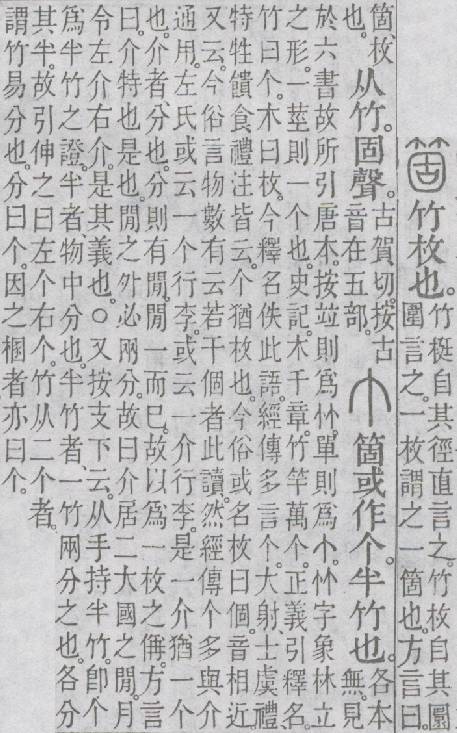 箇竹枚也。
竹梃自其徑直言之。竹枚自其圜
圍言之。一枚謂之一箇也。方言曰。
箇、枚
也。
从竹。固聲。
古賀切。按古
音在五部。
个箇或作个。半竹也。
各本
無見
於六書故所引唐本。按竝則爲𥫗。單則爲个。𥫗字象林立
之形。一莖則一个也。史記。木千章。竹竿萬个。正義引釋名。
竹曰个。木曰枚。今釋名佚此語。經傳多言个。大射、士虞禮、
特牲饋食禮注皆云。个猶枚也。今俗或名枚曰個。音相近。
又云。今俗言物數有云若干個者此讀。然經傳个多與介
通用。左氏或云一个行李。或云一介行李。是一介猶一个
也。介者、分也。分則有閒。閒一而已。故以爲一枚之偁。方言
曰。介、特也。是也。閒之外必兩分。故曰介居二大國之閒。月
令左介右介。是其義也。○又按支下云。从手持半竹。卽个
爲半竹之證。半者、物中分也。半竹者、一竹兩分之也。各分
其半。故引伸之曰左个右个。竹从二个者。
謂竹易分也。分曰个。因之梱者亦曰个。